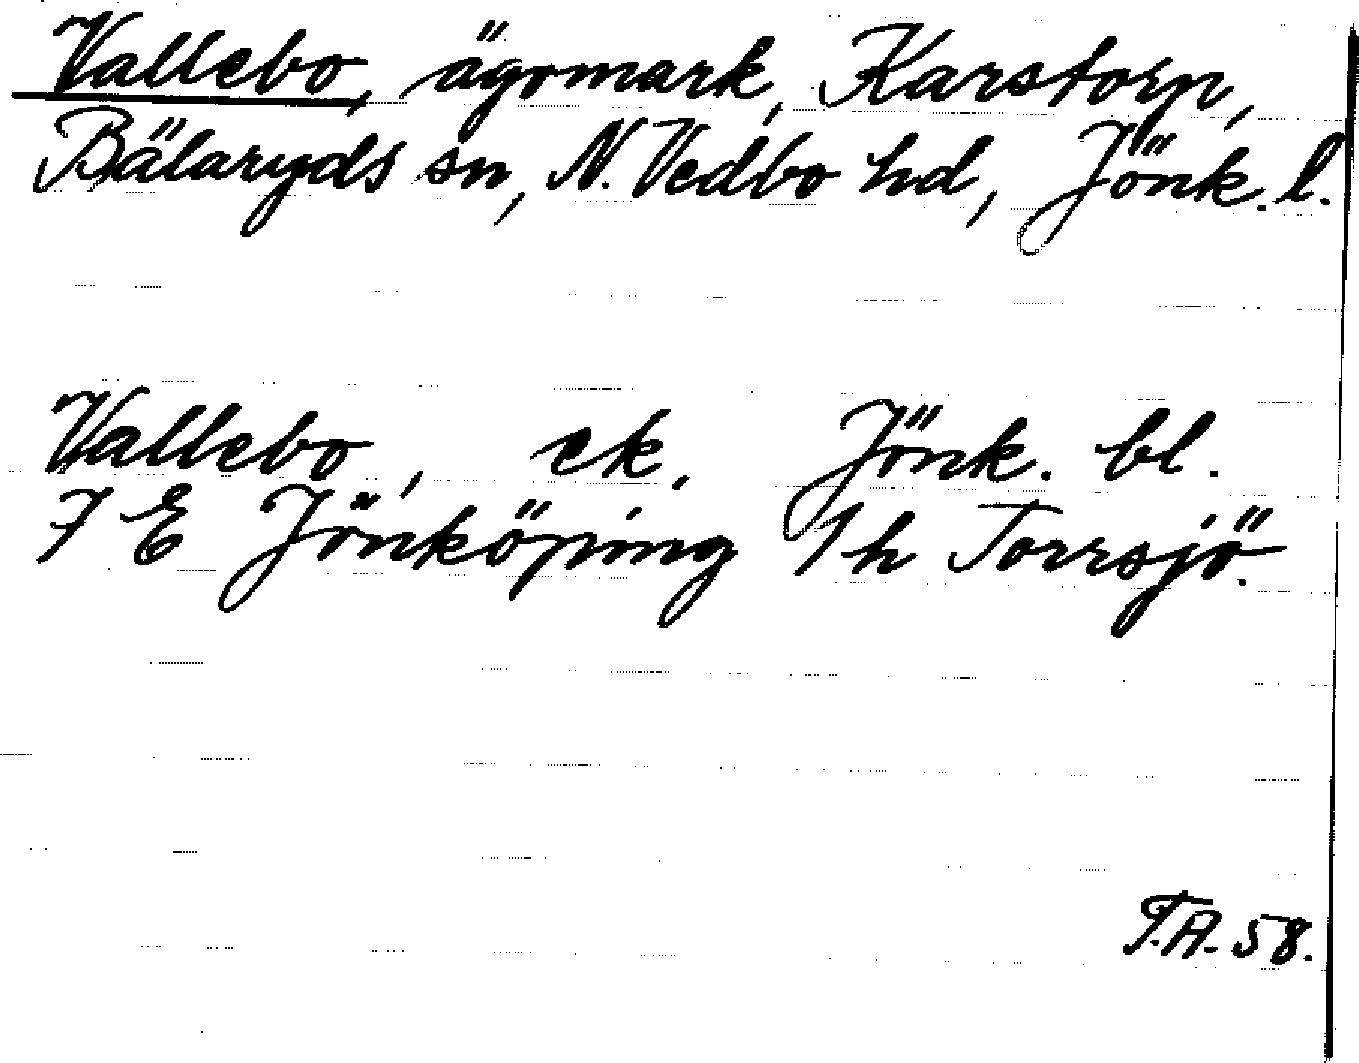 Vallebo, ägomark, Karstorp,
Bälaryds sn, N. Vedbo hd, Jönk. l.
Vallebo, ek. Jönk. bl.
7 E Jönköping 1 h Torrsjö.
T.A. 58.